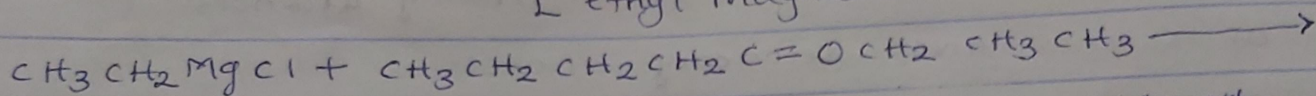 CH3 CH2 Mg Cl + CH3 CH2 CH2 CH2 C = O CH2 CH3 CH3 ⟶